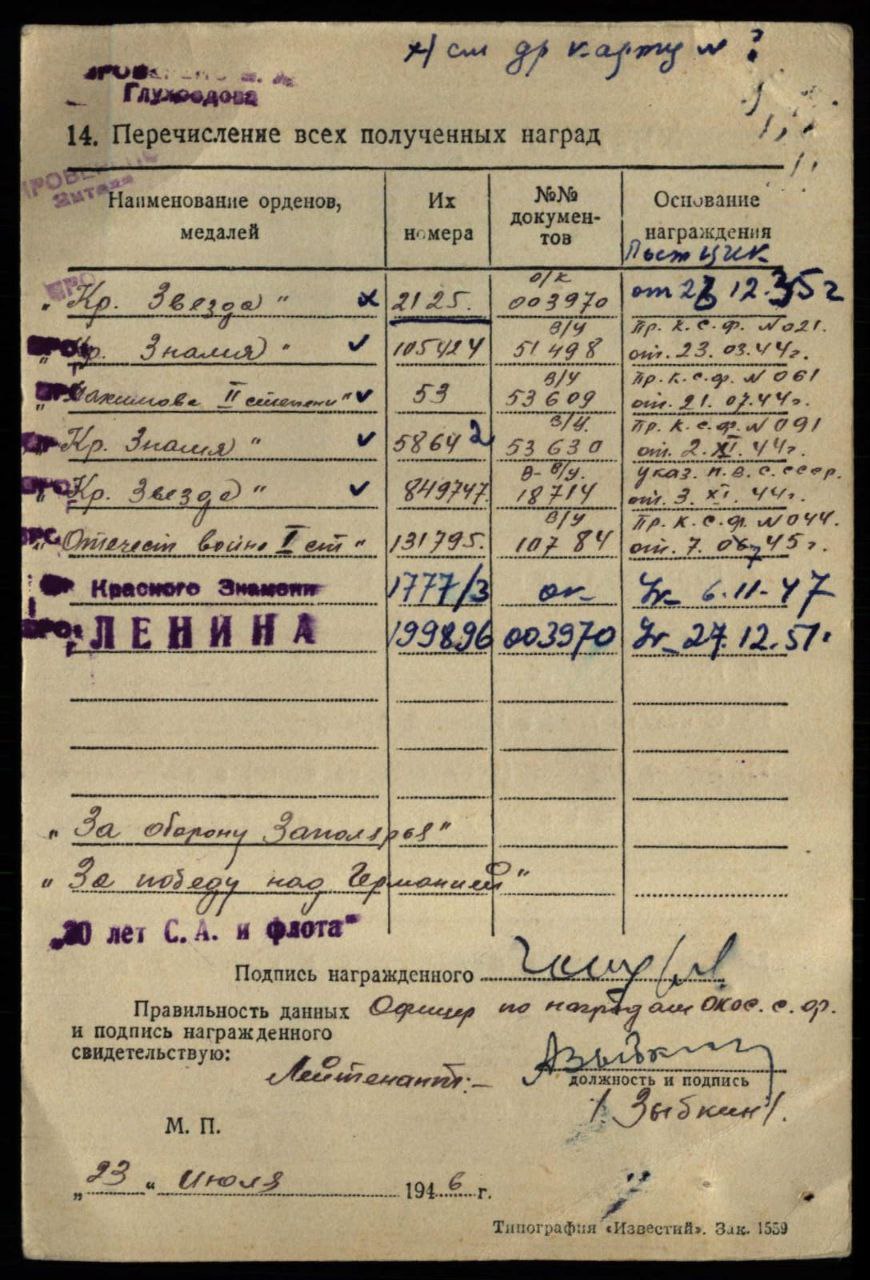 х/ см др карту №
Глухоедова
14. Перечисление всех полученных наград
Наименование орденов, медалей | Их номера | №№ документов | Основание награждения
Пост ЦИК
„Кр. Звезда" х | 2125. | о/к 003970 | от 23 12.35 г
„Кр. Знамя" ✓ | 105424 | в/у 51498 | Пр. К.С.Ф. №021. от. 23.03.44г.
„Нахимова II степени" ✓ | 53 | в/у 53609 | Пр. К.С.Ф. №061 от. 21.07.44г.
„Кр. Знамя" ✓ | 58642 | в/у. 53630 | Пр. К.С.Ф. №091 от. 2.XI.44г.
„Кр. Звезда" ✓ | 849747. | в-в/у. 18714 | указ. П.В.С.СССР. от. 3.XI.44г.
„Отечест войны I ст" | 131795. | в/у 10784 | Пр. К.С.Ф. №044. от. 7. 45г.
Красного Знамени | 1777/3 | ок | Ук 6.11-47
ЛЕНИНА | 199896 | 003970 | Ук 27.12.51г
„За оборону Заполярья"
„За победу над Германией"
„30 лет С. А. и флота"
Подпись награжденного
Правильность данных Офицер по наградам ОКОС.С.Ф.
и подпись награжденного
свидетельствую:
Лейтенант:-
должность и подпись
/Зыбкин/.
М. П.
„23" июля 1946 г.
Типография «Известий». Зак. 1559